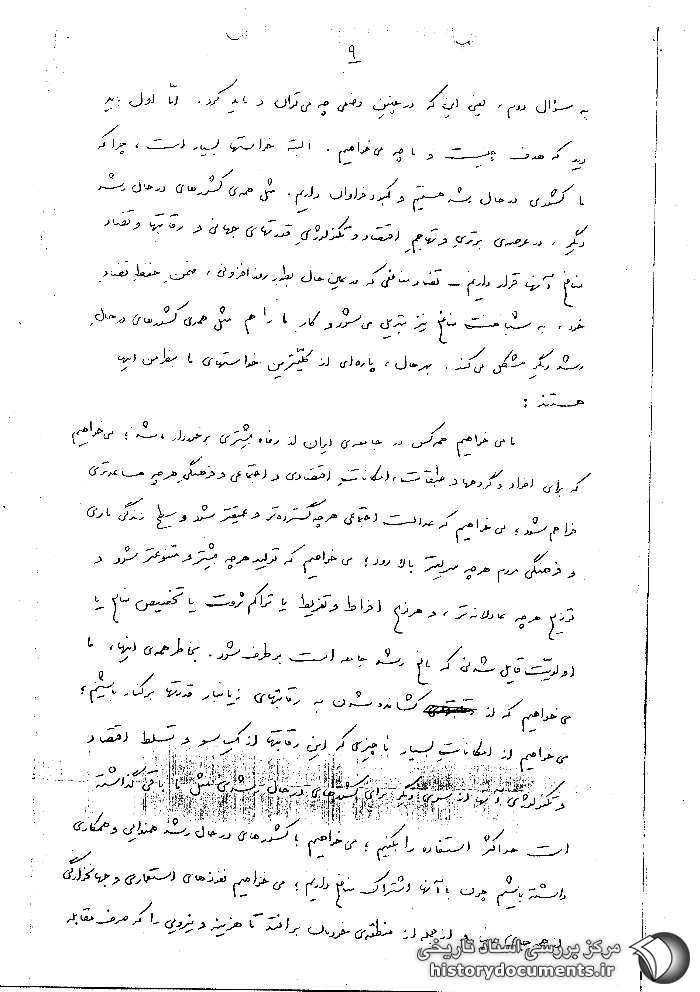 ۹
به سؤال دوم، یعنی این که در چنین وضعی چه می‌توان و باید کرد. امّا اول باید
دید که هدف چیست و ما چه می‌خواهیم. البته خواستها بسیار است، چرا که
ما کشوری در حال رشد هستیم و کمبود فراوان داریم. مثل همه‌ی کشورهای در حال رشد
دیگر، در عرصه‌ی برتری و تهاجمِ اقتصاد و تکنولوژیِ قدرتهای جهانی و رقابتها و تضاد
منافع آنها قرار داریم – تضاد منافعی که در عین حال بطور روزافزونی، ضمنِ حفظِ تضادِ
خود، به شناخت منافع نیز تبدیل می‌شود و کار ما را هم مثل همه‌ی کشورهای در حال
رشد دیگر مشکل می‌کند. بهرحال، پاره‌ای از کلیّترین خواستهای ما بنظر من اینها
هستند:
ما می‌خواهیم همه‌کس در جامعه‌ی ایران از رفاه بیشتری برخوردار باشد؛ می‌خواهیم
که برای افراد و گروهها و طبقات، امکاناتِ اقتصادی و اجتماعی و فرهنگیِ هرچه مساعدتری
فراهم شود؛ می‌خواهیم که عدالت اجتماعی هرچه گسترده‌تر و عمیقتر شود و سطح زندگی مادی
و فرهنگی مردم هرچه سریعتر بالا رود؛ می‌خواهیم که تولید هرچه بیشتر و متنوعتر شود و
توزیع هرچه عادلانه‌تر، و هر نوع افراط و تفریط یا تراکم ثروت یا تخصیص منافع یا
اولویّت قایل شدنی که مانع رشد جامعه است برطرف شود. بخاطر همه‌ی اینها، ما
می‌خواهیم که از کشانده شدن به رقابتهای زیانبار قدرتها برکنار باشیم؛
می‌خواهیم از امکاناتِ بسیار ناچیزی که این رقابتها از یک سو و تسلط اقتصاد
و تکنولوژی آنها از سوی دیگر برای کشورهای در حال رشدی مثل ما باقی گذاشته
است حداکثر استفاده را بکنیم؛ می‌خواهیم با کشورهای در حال رشد همنوایی و همکاری
داشته باشیم چون با آنها اشتراک منافع داریم؛ می‌خواهیم نفوذهای استعماری و جهانخوارگی
از همه جای و از جمله از منطقه‌ی خودمان برافتد تا هزینه و نیرویی را که صرف مقابله
مرکز بررسی اسناد تاریخی
historydocuments.ir